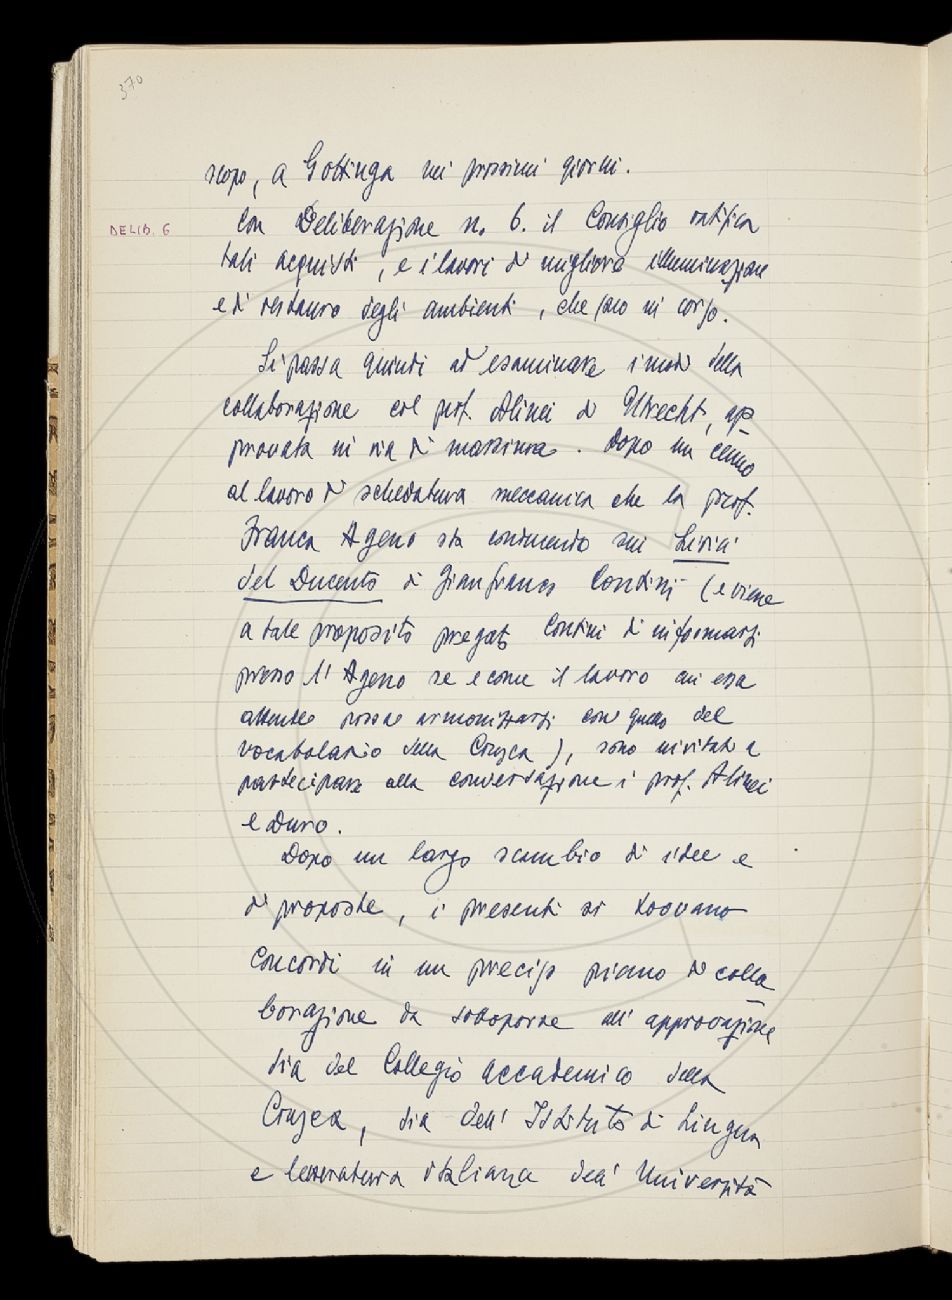 370
scopo, a Gottinga nei prossimi giorni.
DELIB. 6
Con Deliberazione n. 6. il Consiglio ratifica
tali acquisti, e i lavori di migliore illuminazione
e di restauro degli ambienti, che sono in corso.
Si passa quindi ad esaminare i modi della
collaborazione col prof. Alinei di Utrecht, ap
provata in via di massima. Dopo un cenno
al lavoro di schedatura meccanica che la prof.
Franca Ageno sta conducendo sui Lirici
del Duecento di Gianfranco Contini (e viene
a tale proposito pregato Contini di informarsi
presso l'Ageno se e come il lavoro cui essa
attende possa armonizzarsi con quello del
vocabolario della Crusca), sono invitati a
partecipare alla conversazione i prof. Alinei
e Duro.
Dopo un largo scambio di idee e
di proposte, i presenti si trovano
concordi in un preciso piano di colla
borazione da sottoporre all'approvazione
sia del Collegio accademico della
Crusca, sia dell'Istituto di Lingua
e letteratura italiana dell'Università